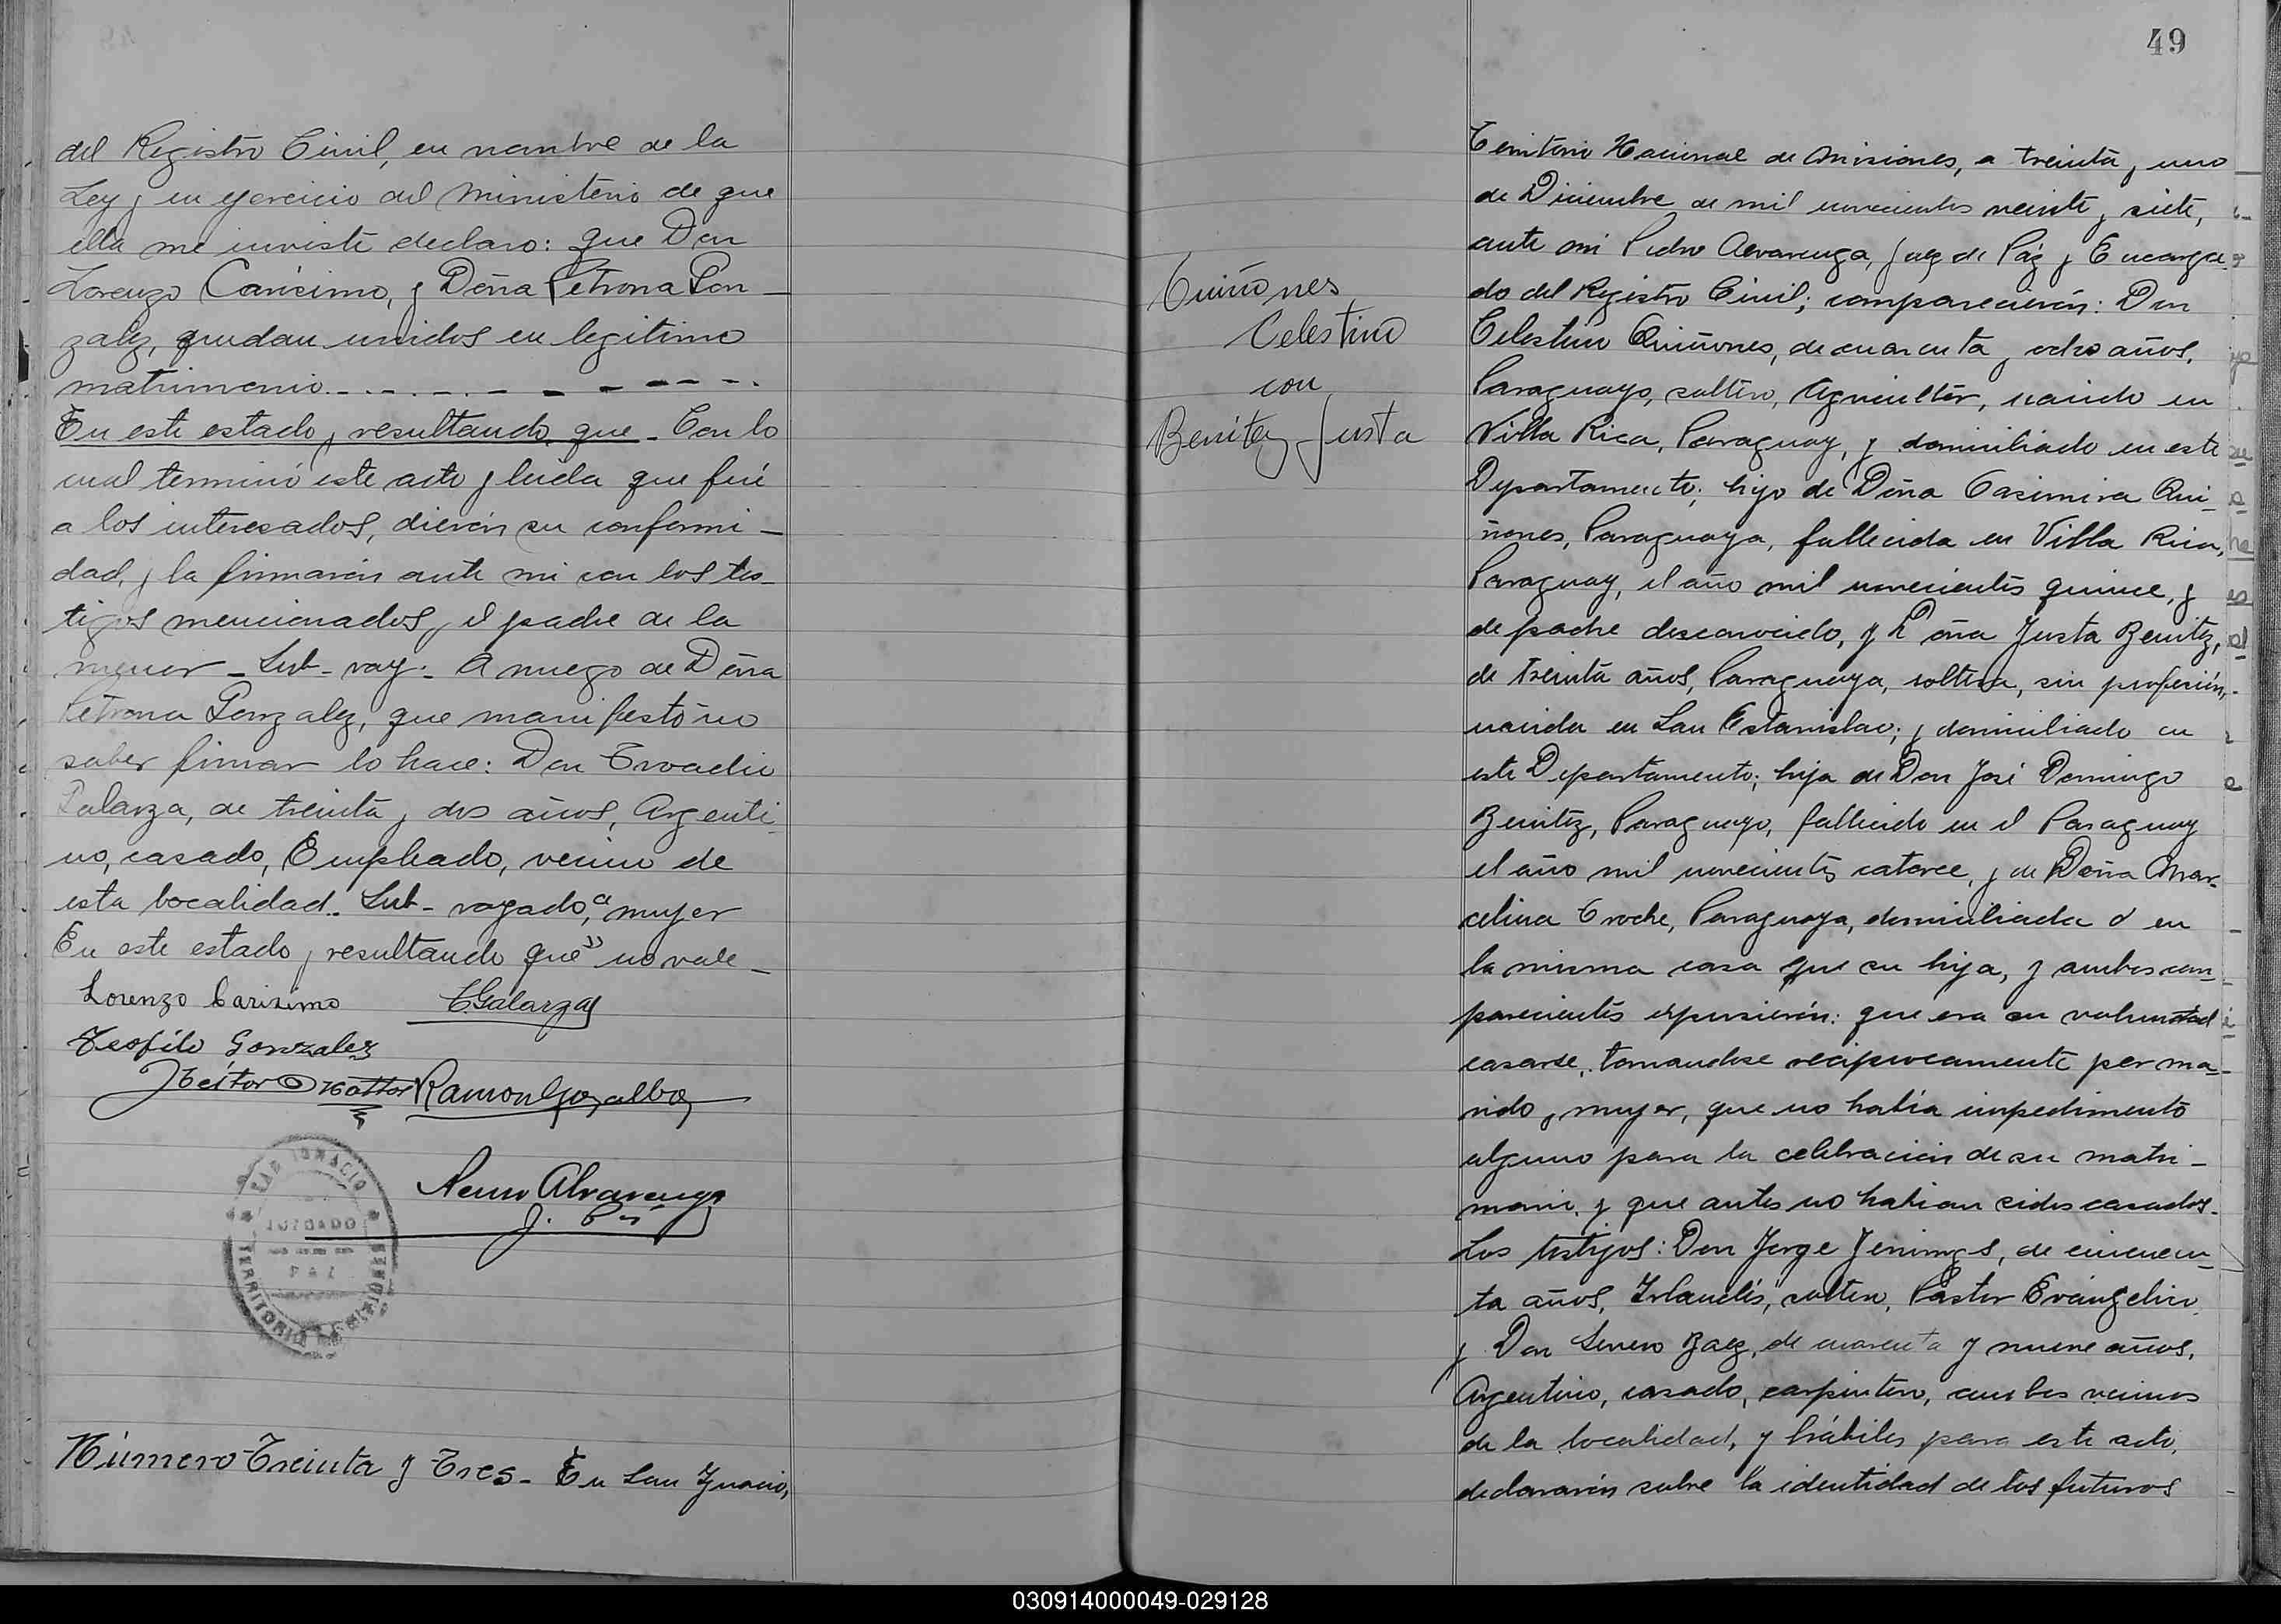 del Registro Civil, en nombre de la
Ley y en ejercicio del Ministerio de que
ella me inviste declaro: que Don
Lorenzo Carísimo, y Doña Petrona Gon-
zalez, quedan unidos en legitimo
matrimonio.
En este estado y resultando que - Con lo
cual terminó este acto y leida que fué
a los interesados, dierón su conformi-
dad, y la firmarón ante mi con los tes-
tigos mencionados y el padre de la
menor - Sub-ray: A ruego de Doña
Petrona Gonzalez, que manifestó no
saber firmar lo hace: Don
Galarza, de treinta y dos años, Argenti-
no, casado, Empleado, vecino de
esta localidad. Sub-rayado, "mujer
En este estado y resultando que" no vale -
Lorenzo Carisimo
Galarza
Teofilo Gonzalez
Héctor
Ramon Gozalbo
Alvarenga
SAN IGNACIO
JUZGADO
PAZ
TERRITORIO MISIONES
Número Treinta y Tres - En San Ignacio,
49
Quiñones
Celestino
con
Benitez Justa
Territorio Nacional de Misiones, a treinta y uno
de Diciembre de mil novecientos veinte y siete,
ante mi Pedro Alvarenga, Juez de Páz y Encarga-
do del Registro Civil; comparecierón: Don
Celestino Quiñones, de cuarenta y ocho años,
Paraguayo, soltero, Agricultor, nacido en
Villa Rica, Paraguay, y domiciliado en este
Departamento; hijo de Doña Casimira Qui-
ñones, Paraguaya, fallecida en Villa Rica,
Paraguay, el año mil novecientos quince, y
de padre desconocido, y Doña Justa Benitez,
de treinta años, Paraguaya, soltera, sin profesión,
nacida en San Estanislao; y domiciliado en
este Departamento; hija de Don José Domingo
Benitez, Paraguayo, fallecido en el Paraguay
el año mil novecientos catorce, y de Doña Mar-
celina Troche, Paraguaya, domiciliada en
la misma casa que su hija, y ambos com-
parecientes expusierón: que era su voluntad
casarse, tomandose reciprocamente por ma-
rido y mujer, que no había impedimento
alguno para la celebración de su matri-
monio y que antes no habian sidos casados.
Los testigos: Don Jorge Jenimgs, de cincuen-
ta años, Irlandés, soltero, Pastor Evángelico
y Don Severo Baez, de cuarenta y nueve años,
Argentino, casado, carpintero, ambos vecinos
de la localidad, y hábiles para este acto,
declararón sobre la identidad de los futuros
030914000049-029128